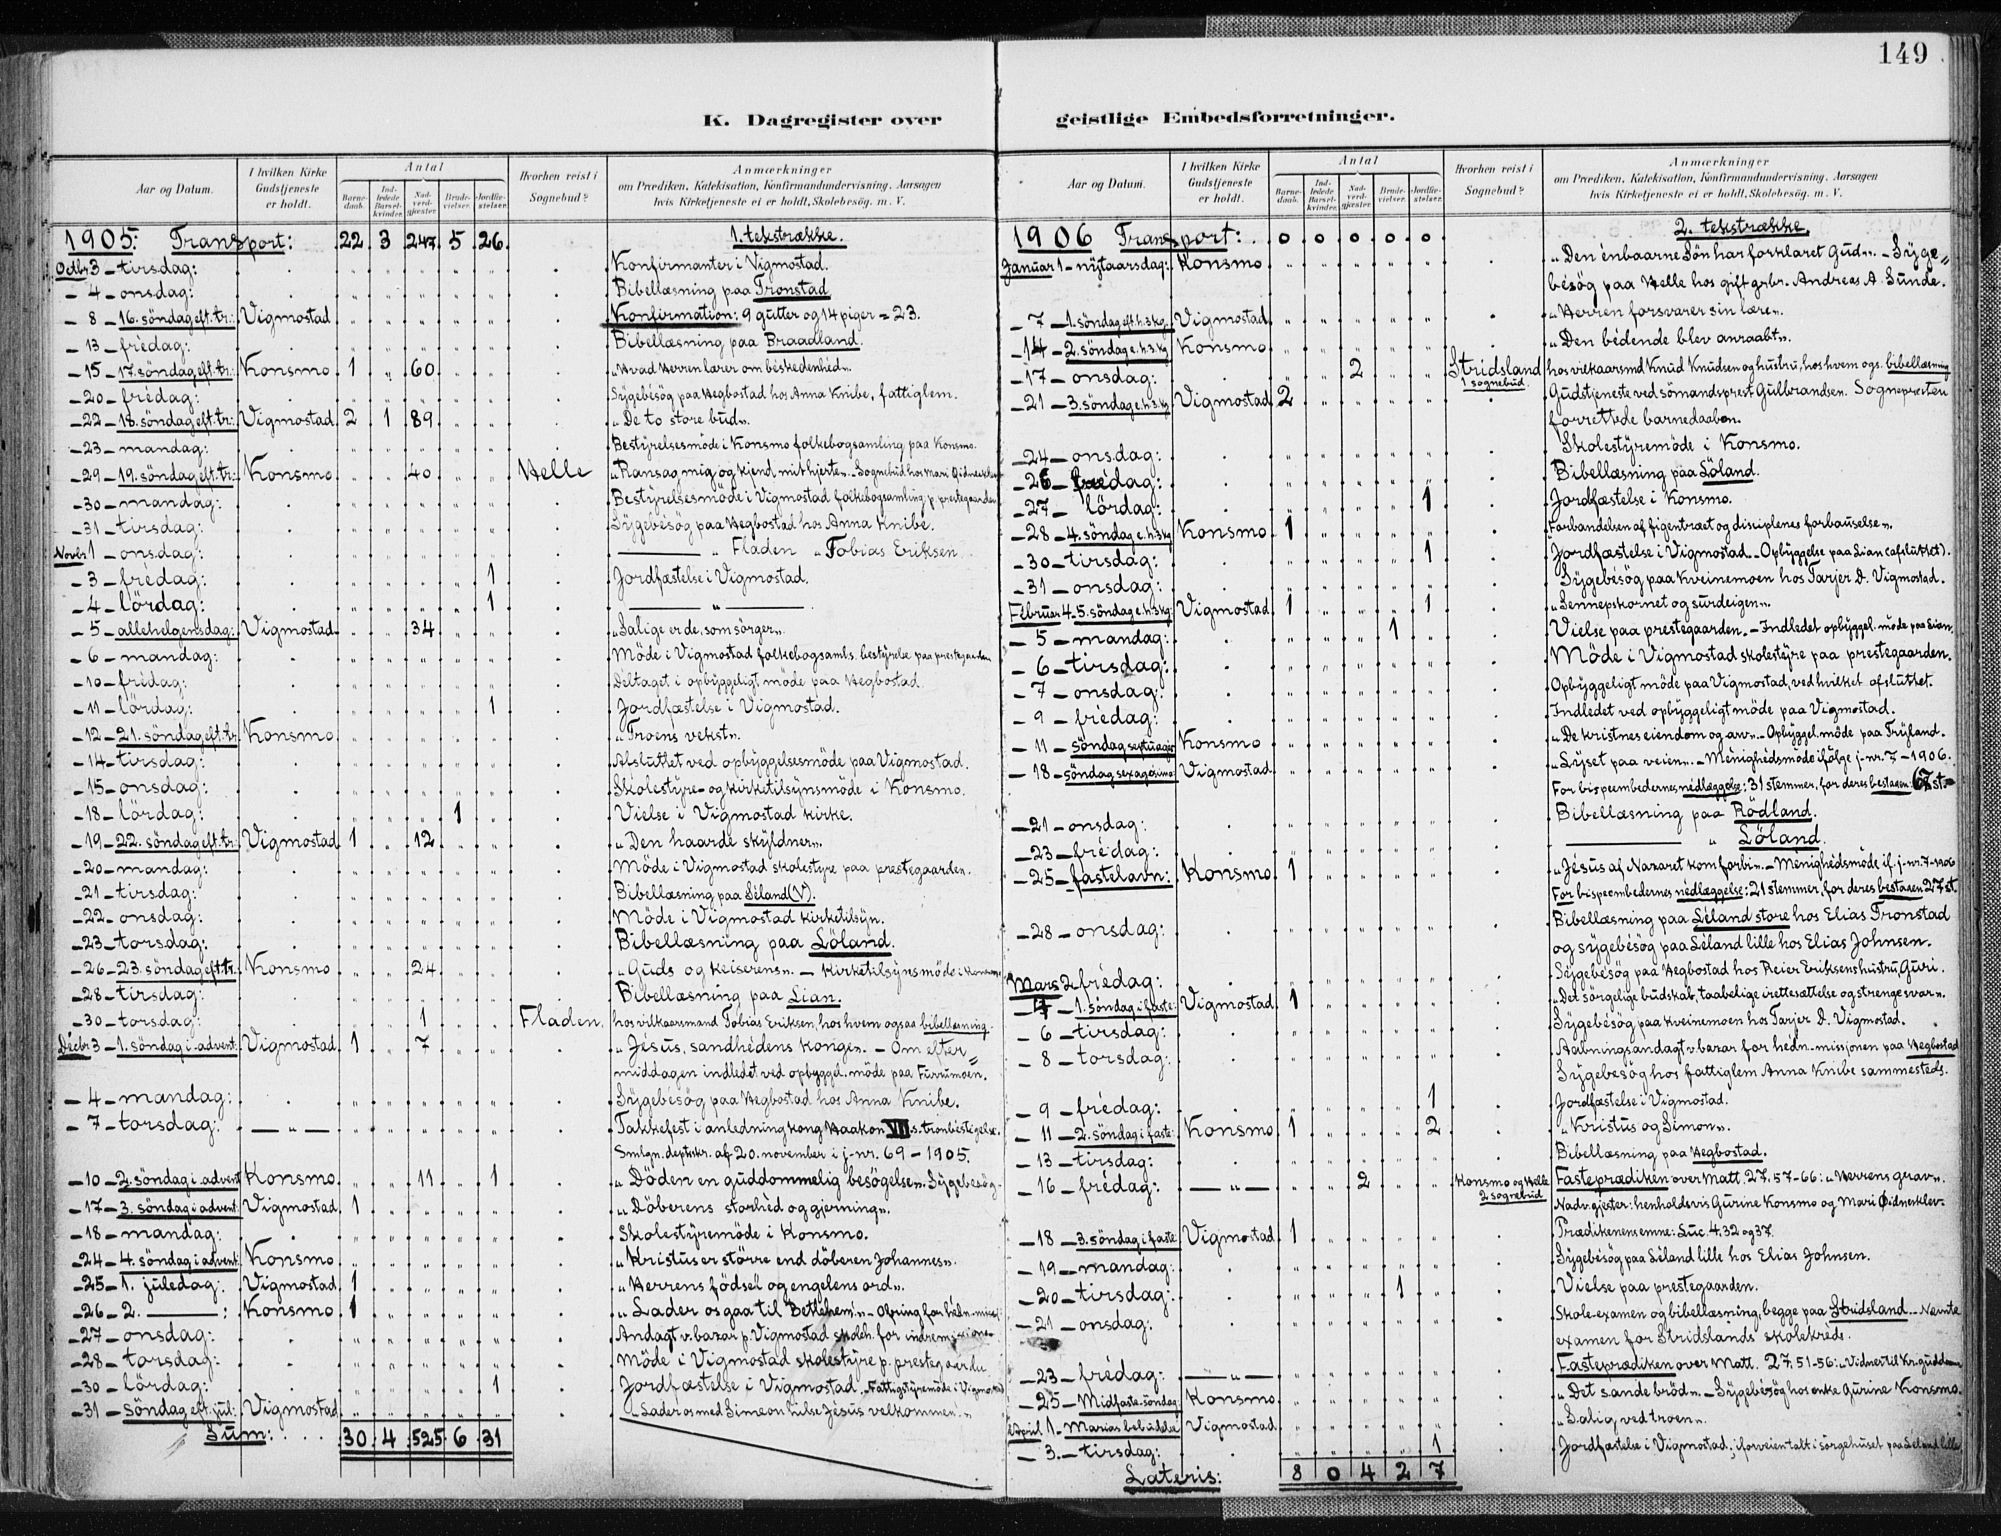 149
K. Dagregister over
Aar og Datum.
I hvilken Kirke Gudstjeneste er holdt.
Antal
Barnedaab.
Indledede Barselkvinder.
Nadverdgjæster.
Brudevielser.
Jordfæstelser.
Hvorhen reist i Sognebud?
Anmærkninger
om Prædiken, Katekisation, Konfirmandundervisning, Aarsagen
hvis Kirketjeneste ei er holdt, Skolebesøg, m. V.
1905. Transport: 22 3 247 5 26 1. tekstrække.
Octbr 3 – tirsdag: Konfirmanter i Vigmostad.
– 4 – onsdag: Bibellæsning paa Tronstad
– 8 – 16. söndag eft. tr.: Vigmostad Konfirmation: 9 gutter og 14 piger = 23.
– 13 – fredag: Bibellæsning paa Braadland.
– 15 – 17. söndag eft. tr.: Konsmo 1 „ 60 „Hvad Herren lærer om beskedenhed".
– 20 – fredag: Sygebesög paa Hegbostad hos Anna Knibe, fattiglem.
– 22 – 18. söndag eft. tr.: Vigmostad 2 1 89 „De to store bud".
– 23 – mandag: Bestyrelsesmöde i Konsmo folkebogsamling paa Konsmo.
– 29 – 19. söndag eft. tr.: Konsmo 40 Helle „Ransag mig og kjend mit hjerte". Sognebud hos Mari
– 30 – mandag: Bestyrelsesmöde i Vigmostad folkebogsamling p. prestegaarden
– 31 – tirsdag: Sygebesög paa Hegbostad hos Anna Knibe.
Novbr 1 – onsdag: — „ Fladen „ Tobias Eriksen.
– 3 – fredag: 1 Jordfæstelse i Vigmostad.
– 4 – lördag: 1 — „ —
– 5 – allehelgensdag: Vigmostad 34 „Salige er de, som sörger".
– 6 – mandag: Möde i Vigmostad folkebogsamls. bestyrelse paa prestegaarden
– 10 – fredag: Deltaget i opbyggeligt möde paa Hegbostad.
– 11 – lördag: 1 Jordfæstelse i Vigmostad.
– 12 – 21. söndag eft. tr. Konsmo „Troens vekst".
– 14 – tirsdag: Afsluttet ved opbyggelsesmöde paa Vigmostad.
– 15 – onsdag: Skolestyre- og kirketilsynsmöde i Konsmo.
– 18 – lördag: 1 Vielse i Vigmostad kirke.
– 19 – 22. söndag eft. tr.: Vigmostad 1 12 „Den haarde skyldner".
– 20 – mandag: Möde i Vigmostad skolestyre paa prestegaarden.
– 21 – tirsdag: Bibellæsning paa Leland (V).
– 22 – onsdag: Möde i Vigmostad kirketilsyn.
– 23 – torsdag: Bibellæsning paa Löland.
– 26 – 23. söndag eft. tr. Konsmo 24 „Guds og keiserens". – Kirketilsynsmöde i Konsmo
– 28 – tirsdag: Bibellæsning paa Lian.
– 30 – torsdag: 1 Fladen. hos vilkaarsmand Tobias Eriksen, hos hvem ogsaa bibellæsning.
Decbr 3 – 1. söndag i advent: Vigmostad 1 7 „Jesus, sandhedens konge". – Om efter=
middagen indledet ved opbyggel. möde paa Furrumoen.
– 4 – mandag: Sygebesög paa Hegbostad hos Anna Knibe.
– 7 – torsdag: — „ — Takkefest i anledning kong Haakon VII's tronbestigelse.
Smlgn. deptskr. af 20. november i j-nr. 69 – 1905.
– 10 – 2. söndag i advent Konsmo 11 1 „Döden en guddommelig besögelse". Sygebesög.
– 17 – 3. söndag i advent: Vigmostad 1 „Döberens storhed og gjerning".
– 18 – mandag: Skolestyremöde i Konsmo.
– 24 – 4. söndag i advent: Konsmo „Kristus er större end döberen Johannes".
– 25 – 1. juledag: Vigmostad 1 „Herrens födsel og engelens ord".
– 26 – 2. — : Konsmo 1 „Lader os gaa til Betlehem". – Ofring for hedn. miss.
– 27 – onsdag: Andagt v. bazar p. Vigmostad skoleh. for indremissione
– 28 – torsdag: Möde i Vigmostad skolestyre p. prestegaarden
– 30 – lördag: 1 Jordfæstelse i Vigmostad. Fattigstyremöde i Vigmostad
– 31 – söndag eft. jul: Vigmostad „Lader os med Simeon hilse Jesus velkommen".
Sum: 30 4 525 6 31
geistlige Embedsforretninger.
Aar og Datum.
I hvilken Kirke Gudstjeneste er holdt.
Antal
Barnedaab.
Indledede Barselkvinder.
Nadverdgjæster.
Brudevielser.
Jordfæstelser.
Hvorhen reist i Sognebud?
Anmærkninger
om Prædiken, Katekisation, Konfirmandundervisning, Aarsagen
hvis Kirketjeneste ei er holdt, Skolebesøg, m. V.
1906 Transport: 0 0 0 0 0 2. tekstrække.
Januar 1 – nytaarsdag: Konsmo „Den enbaarne Sön har forklaret Gud". – Syge=
besög paa Helle hos gift grbr. Andreas A. Sunde.
– 7 – 1. söndag eft. h. 3 kg. Vigmostad „Herren forsvarer sin lære".
– 14 – 2. söndag e. h. 3 kg Konsmo „Den bedende blev anraabt".
– 17 – onsdag: 2 Stridsland 1 sognebud. hos vilkaarsmd Knud Knudsen og hustru, hos hvem ogs. bibellæsning
– 21 – 3. söndag e. h. 3 kg. Vigmostad 2 Gudstjeneste ved sömandsprest Gulbrandsen. Sognepresten
forrettede barnedaaben.
– 24 – onsdag: Skolestyremöde i Konsmo.
– 26 – fredag: Bibellæsning paa Löland.
– 27 – lördag: 1 Jordfæstelse i Konsmo.
– 28 – 4. söndag e. h. 3 kg Konsmo 1 Forbandelsen af figentræet og disciplenes forbauselse".
– 30 – tirsdag: 1 Jordfæstelse i Vigmostad. – Opbyggelse paa Lian (afsluttet).
– 31 – onsdag: Sygebesög paa Kveinemoen hos Tarjer D. Vigmostad.
Februar 4 – 5. söndag e. h. 3 kg: Vigmostad 1 1 „Sennepskornet og surdeigen".
– 5 – mandag: 1 Vielse paa prestegaarden. – Indledet opbyggel. möde paa Lian.
– 6 – tirsdag: Möde i Vigmostad skolestyre paa prestegaarden.
– 7 – onsdag: Opbyggeligt möde paa Vigmostad, ved hvilket afsluttet.
– 9 – fredag: Indledet ved opbyggeligt möde paa Vigmostad.
– 11 – söndag septuages. Konsmo „De kristnes eiendom og arv". – Opbyggel. möde paa Tryland.
– 18 – söndag sexagesima: Vigmostad „Lyset paa veien". – Menighedsmöde ifölge j-nr. 7 – 1906.
For bispeembedernes nedlæggelse: 31 stemmer, for deres bestaaen 67 st.
– 21 – onsdag: Bibellæsning paa Rödland.
– 23 – fredag: — „ Löland.
– 25 – fastelavn: Konsmo 1 „Jesus af Nazaret kom forbi". – Menighedsmöde if. j-nr. 7-1906
For bispeembedernes nedlæggelse: 21 stemmer, for deres bestaaen 27 st.
– 28 – onsdag: Bibellæsning paa Leland store hos Elias Tronstad
og sygebesög paa Leland lille hos Elias Johnsen.
Mars 2 – fredag: Sygebesög paa Hegbostad hos Reier Eriksens hustru, Guri.
– 4 – 1. söndag i faste: Vigmostad 1 „Det sörgelige budskab, taabelige irettesættelse og strenge svar".
– 6 – tirsdag: Sygebesög paa Kveinemoen hos Tarjer D. Vigmostad.
– 8 – torsdag: Aabningsandagt v. bazar for hedn.-missjonen paa Hegbostad
Sygebesög hos fattiglem Anna Knibe sammesteds.
– 9 – fredag: 1 Jordfæstelse i Vigmostad.
– 11 – 2. söndag i faste: Konsmo 1 2 „Kristus og Simon".
– 13 – tirsdag: Bibellæsning paa Hegbostad.
– 16 – fredag: — „ — 2 Konsmo og Helle 2 sognebud Fasteprædiken over Matt. 27. 57-66: „Herrens grav".
Nadv.gjester: henholdsvis Gurine Konsmo og Mari Øidnesklev.
– 18 – 3. söndag i faste: Vigmostad 1 Prædikenens emne: Luc. 4. 32 og 37.
– 19 – mandag: Sygebesög paa Leland lille hos Elias Johnsen.
– 20 – tirsdag: 1 Vielse paa prestegaarden.
– 21 – onsdag: Skole-examen og bibellæsning, begge paa Stridsland. – Nævnte
examen for Stridslands skolekreds.
– 23 – fredag: — „ — Fasteprædiken over Matt. 27. 51-56: „Vidner til Kr. guddom
– 25 – Midfaste-söndag Konsmo „Det sande bröd". – Sygebesög hos enke Gurine Konsmo.
April 1 – Marias bebudelse Vigmostad „Salig ved troen".
– 3 – tirsdag: 1 Jordfæstelse i Vigmostad; iforveien talt i sörgehuset paa Leland lille
Lateris: 8 0 4 2 7